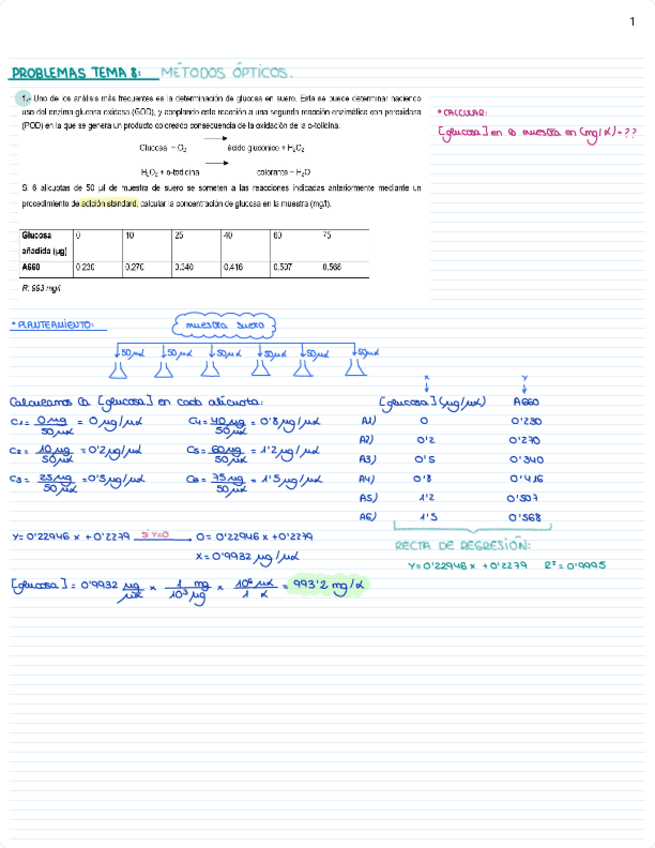 1
PROBLEMAS TEMA 8: MÉTODOS ÓPTICOS.
1.- Uno de los análisis más frecuentes es la determinación de glucosa en suero. Esta se puede determinar haciendo
uso del enzima glucosa oxidasa (GOD), y acoplando esta reacción a una segunda reacción enzimática con peroxidasa
(POD) en la que se genera un producto coloreado consecuencia de la oxidación de la o-tolidina.
Glucosa + O2 → ácido glucónico + H2O2
H2O2 + o-tolidina → colorante + H2O
Si 6 alícuotas de 50 µl de muestra de suero se someten a las reacciones indicadas anteriormente mediante un
procedimiento de adición standard, calcular la concentración de glucosa en la muestra (mg/l).
* CALCULAR:
[glucosa] en la muestra en (mg/l) = ??
Glucosa añadida (µg) 0 10 25 40 60 75
A660 0.230 0.270 0.340 0.416 0.507 0.568
R: 993 mg/l
* PLANTEAMIENTO:
muestra suero
50µl 50µl 50µl 50µl 50µl 50µl
Calculamos la [glucosa] en cada alícuota:
C1 = 0µg / 50µl = 0µg/µl C4 = 40µg / 50µl = 0'8µg/µl
C2 = 10µg / 50µl = 0'2µg/µl C5 = 60µg / 50µl = 1'2µg/µl
C3 = 25µg / 50µl = 0'5µg/µl C6 = 75µg / 50µl = 1'5µg/µl
x y
[glucosa] (µg/µl) A660
A1) 0 0'230
A2) 0'2 0'270
A3) 0'5 0'340
A4) 0'8 0'416
A5) 1'2 0'507
A6) 1'5 0'568
RECTA DE REGRESIÓN:
y = 0'22946 x + 0'2279 R² = 0'9995
y = 0'22946 x + 0'2279 si y=0 → 0 = 0'22946 x + 0'2279
x = 0'9932 µg/µl
[glucosa] = 0'9932 µg/µl × 1 mg / 10³ µg × 10⁶ µl / 1 l = 993'2 mg/l